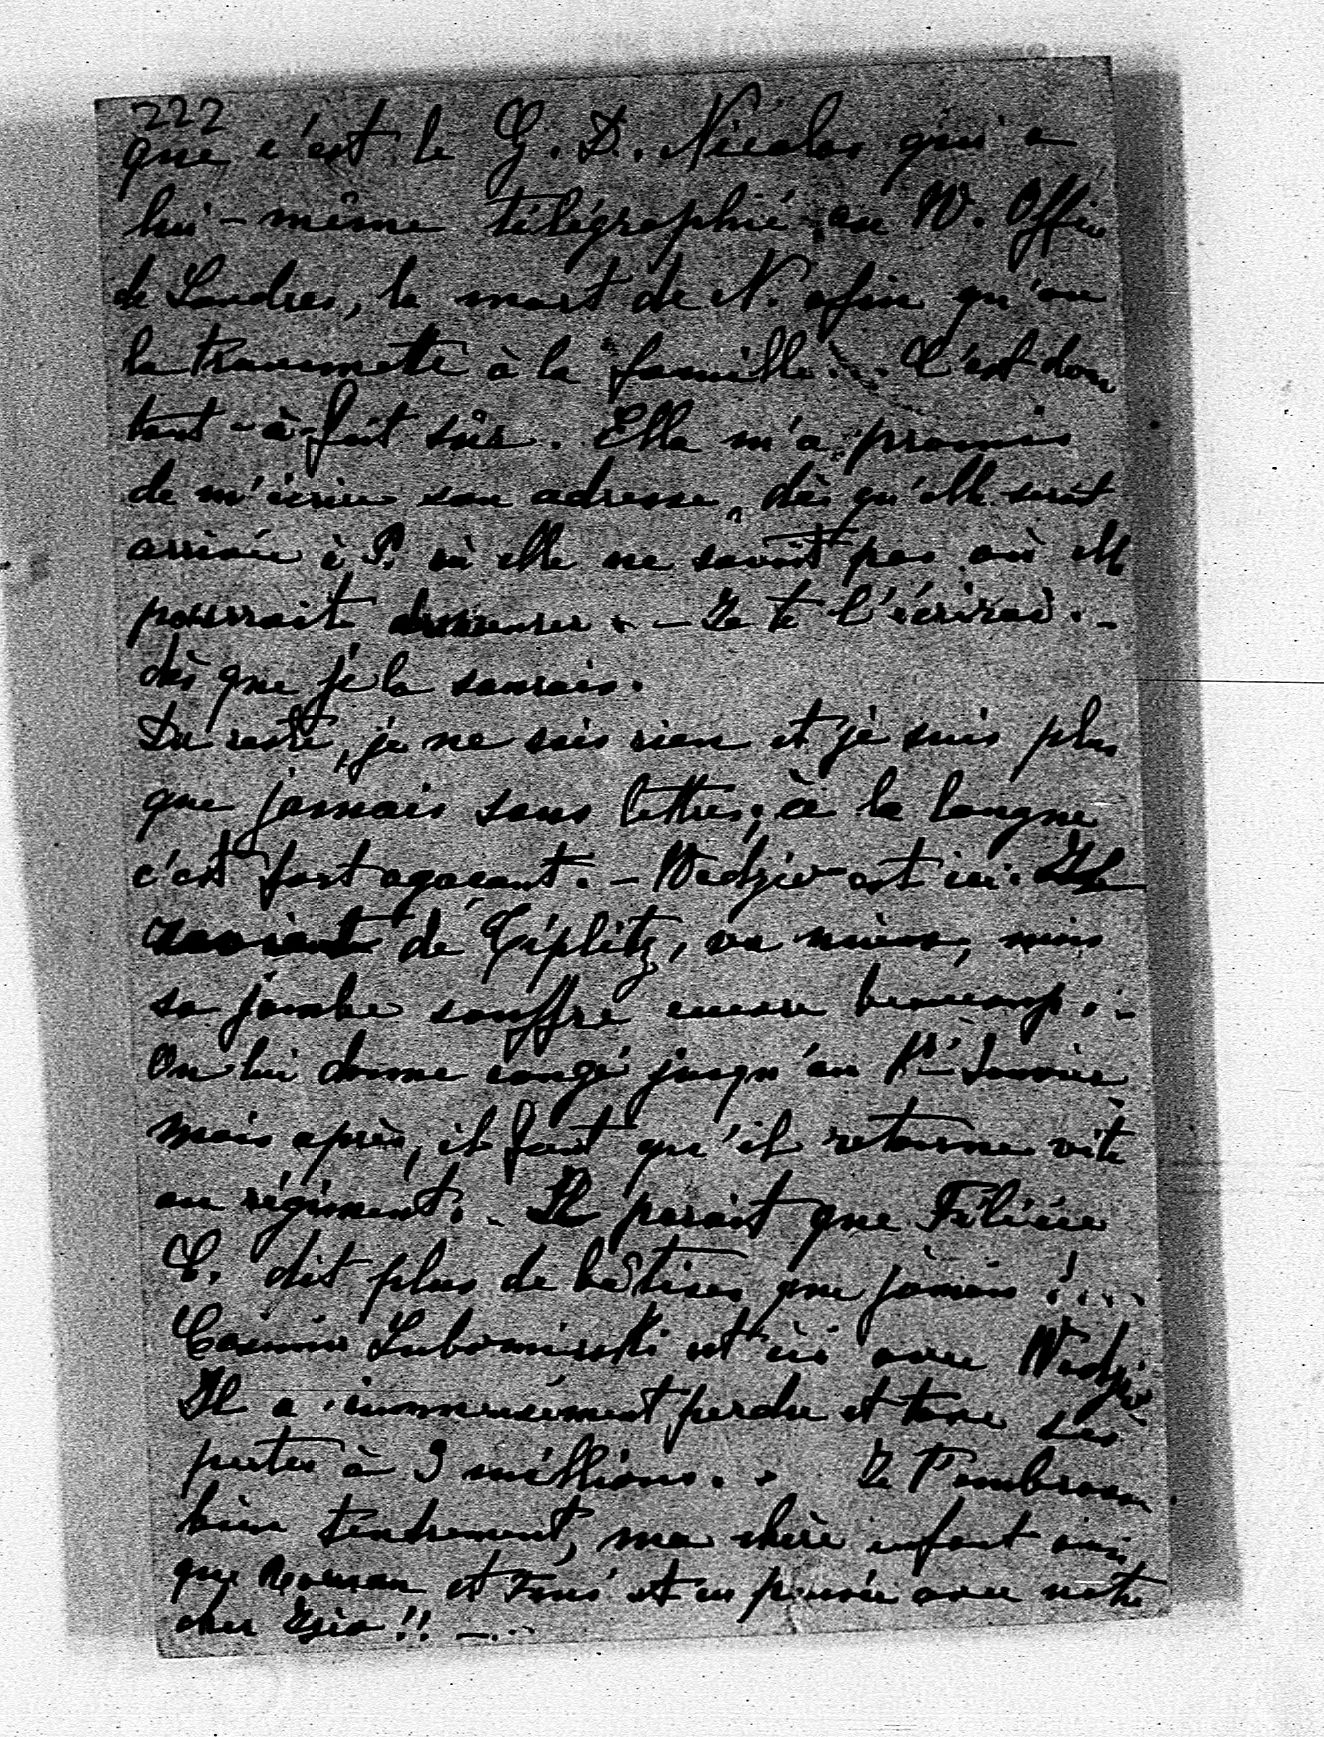 222
que c'est le G. D. Nicolas qui a
lui-même télégraphié au W. Office
de Londres, la mort de N. afin qu'on
la transmette à la famille... C'est donc
tout-à-fait sûr. Elle m'a promis
de m'écrire son adresse, dès qu'elle serait
arrivée à P. où elle ne savait pas où elle
pourrait demeurer. - Je te l'écrirai. -
dès que je la saurais.
Du reste, je ne sais rien et je suis plus
que jamais sans lettres; à la longue
c'est fort agaçant. - Wedziw est ici. Il
revient de Téplitz, va mieux, mais
sa jambe souffre encore beaucoup. -
On lui donne congé jusqu'au 1er Janvier
mais après, il faut qu'il retourne vite
au régiment. - Il parait que Félicie
C. dit plus de bêtises que jamais!...
Casimir Lubomirski est ici avec Wedziw
Il a immensément perdu et taxe ses
pertes à 3 millions. . Je t'embrasse
bien tendrement, ma chère enfant ainsi
que Roman et Tous et en pensée avec notre
cher !! -...